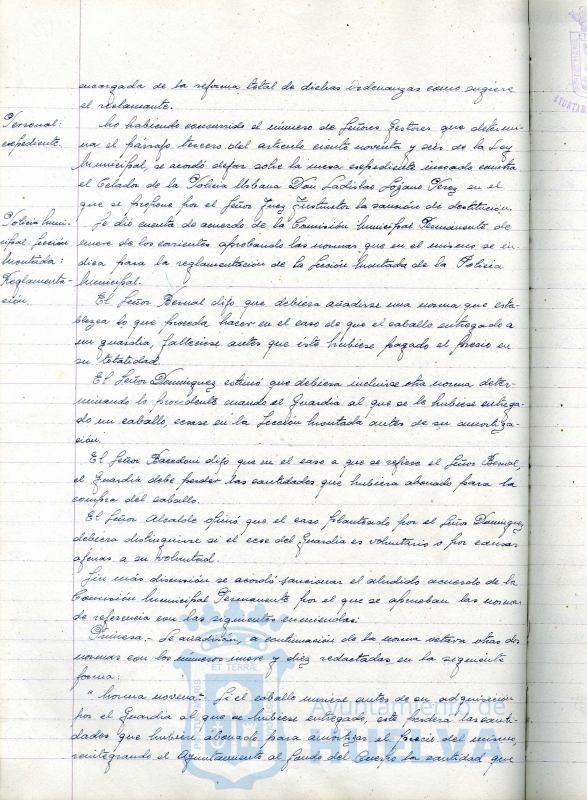 encargada de la reforma total de dichas Ordenanzas como sugiere
el reclamante.
Personal:
expediente.
No habiendo concurrido el número de Señores Gestores que determi-
na el párrafo tercero del artículo ciento noventa y seis de la Ley
Municipal, se acordó dejar sobre la mesa expediente incoado contra
el Celador de la Policía Urbana Don Ladislao Lozano Pérez en el
que se propone por el Señor Juez Instructor la sanción de destitución.
Policía Muni-
cipal: Sección
Montada:
Reglamenta-
ción.
Se dió cuenta de acuerdo de la Comisión Municipal Permanente de
nueve de los corrientes aprobando las normas que en el mismo se in-
dica para la reglamentación de la Sección Montada de la Policía
Municipal.
El Señor Bernal dijo que debiera añadirse una norma que esta-
blezca lo que proceda hacer en el caso de que el caballo entregado a
un guardia, falleciese antes que éste hubiese pagado el precio en
su totalidad.
El Señor Domínguez estimó que debiera incluirse otra norma deter-
minando lo procedente cuando el Guardia al que se le hubiese entrega-
do un caballo, cesase en la Sección Montada antes de su amortiza-
ción.
El Señor dijo que en el caso a que se refiere el Señor Bernal,
el Guardia debe perder las cantidades que hubiera abonado para la
compra del caballo.
El Señor Alcalde opinó que el caso planteado por el Señor Domínguez
debiera distinguirse si el cese del Guardia es voluntario o por causas
ajenas a su voluntad.
Sin más discusión se acordó sancionar el aludido acuerdo de la
Comisión Municipal Permanente por el que se aprueban las normas
de referencia con las siguientes enmiendas:
Primera.- Se añadirán, a continuación de la norma octava otras dos
normas con los números nueve y diez redactadas en la siguiente
forma:
"Norma novena.- Si el caballo muriese antes de su adquisición
por el Guardia al que se hubiese entregado, este perderá las canti-
dades que hubiere abonado para amortizar el precio del mismo,
reintegrando el Ayuntamiento al fondo del Cuerpo la cantidad que
Ayuntamiento de
HUELVA